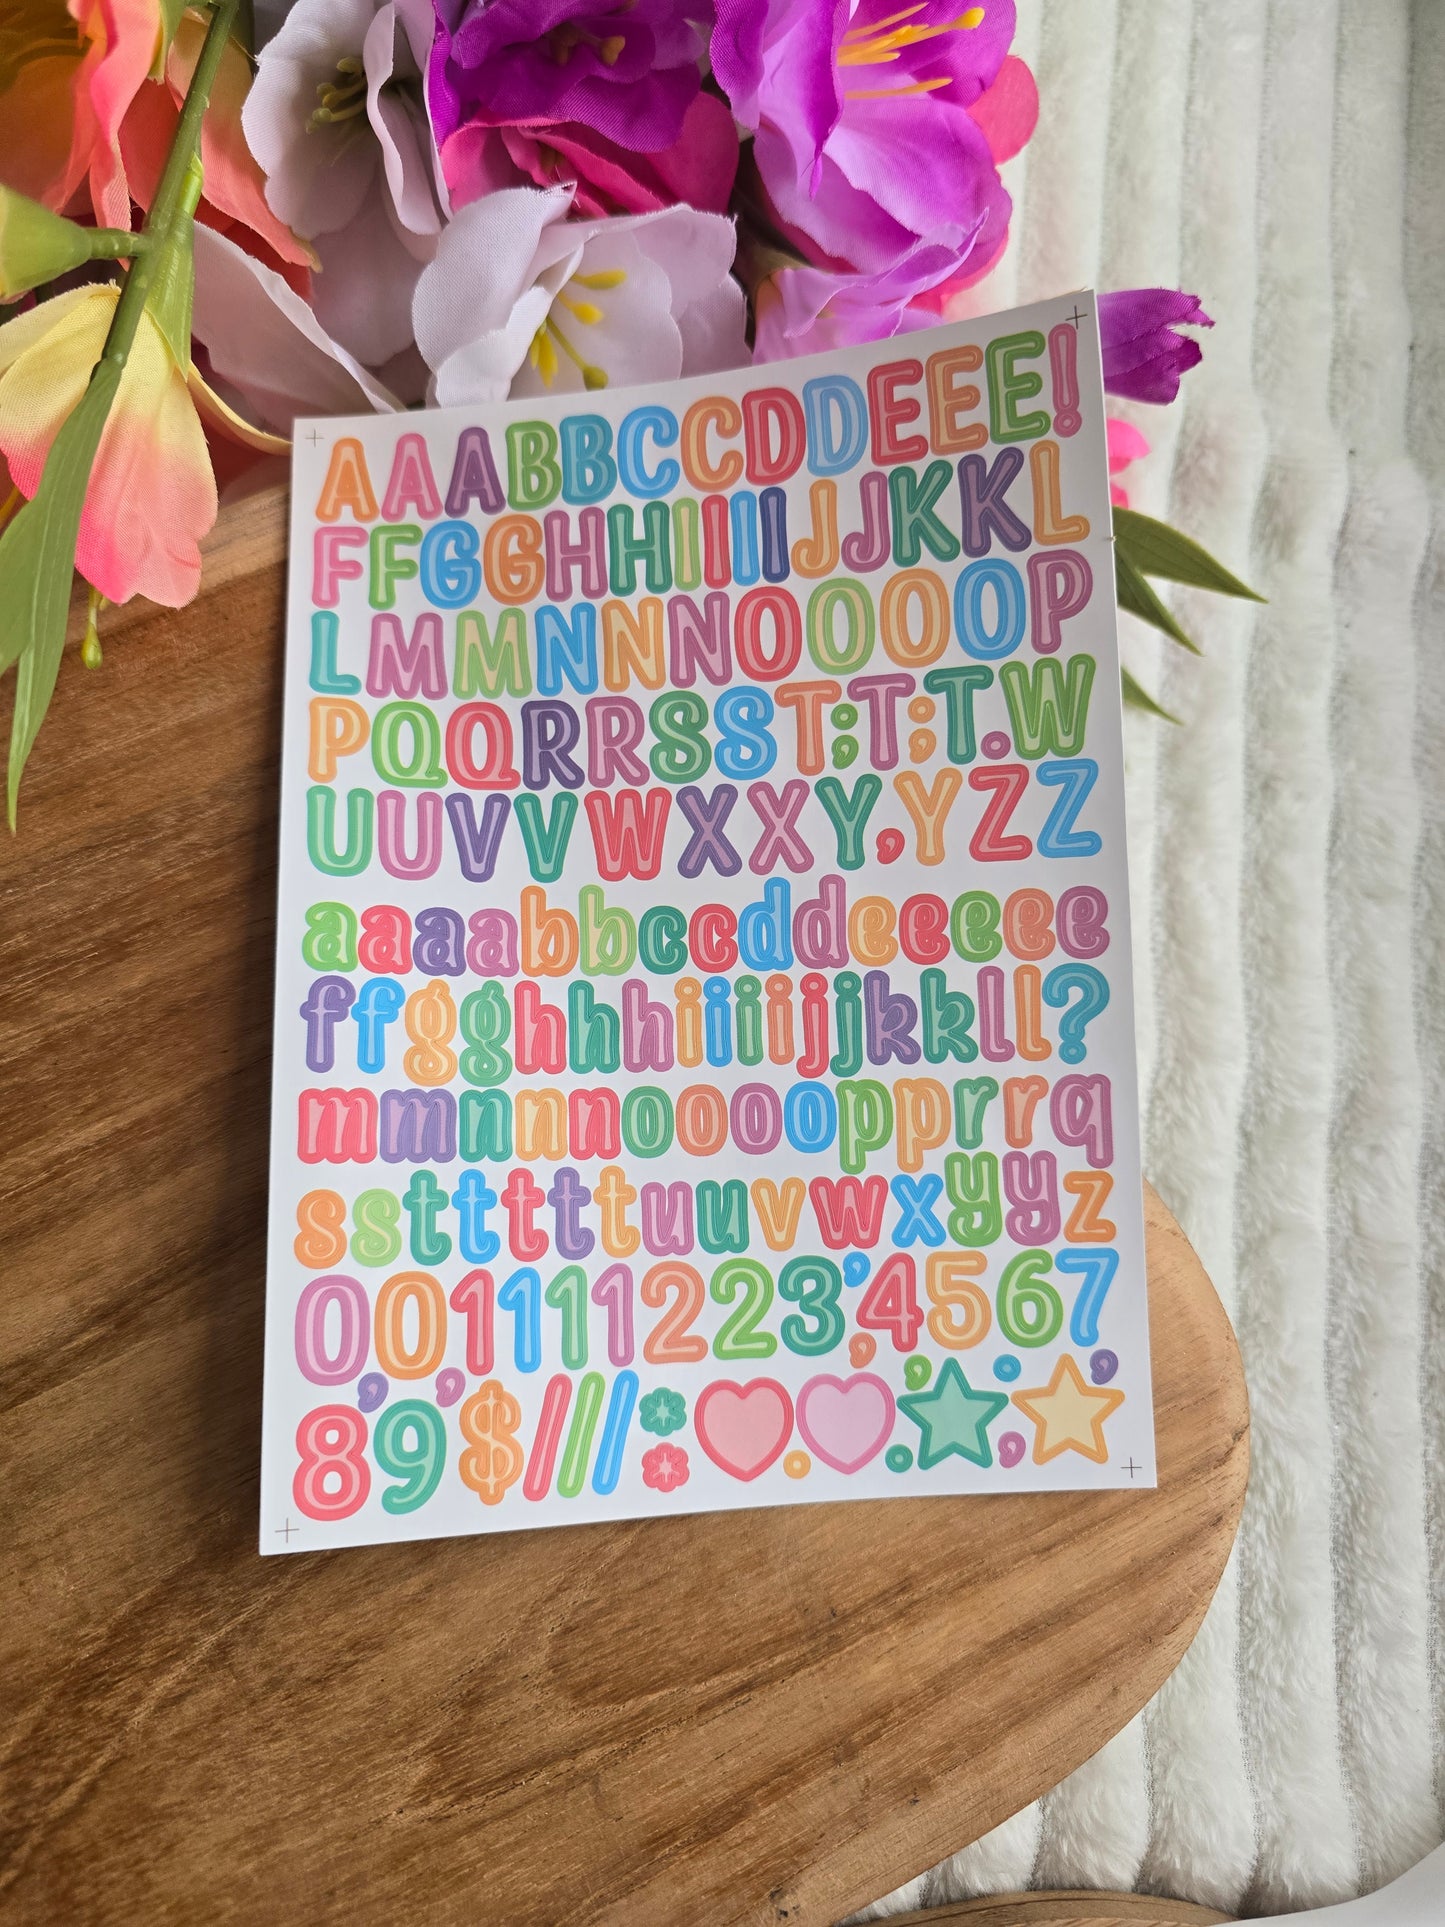 AAABBCCDDEEE!
FFGGHHIIIIJJKKL
LMMNNNOOOOP
PQQRRSST;T;T.W
UUVVWXXY,YZZ
aaaabbccddeeeee
ffgghhhiiiijjkkll?
mmnnnoooopprrq
sstttttuuvwxyyz
0011112223',4567
8,9,$///